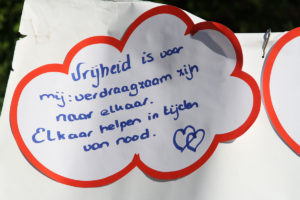 Vrijheid is voor
mij: verdraagzaam zijn
naar elkaar.
Elkaar helpen in tijden
van nood.